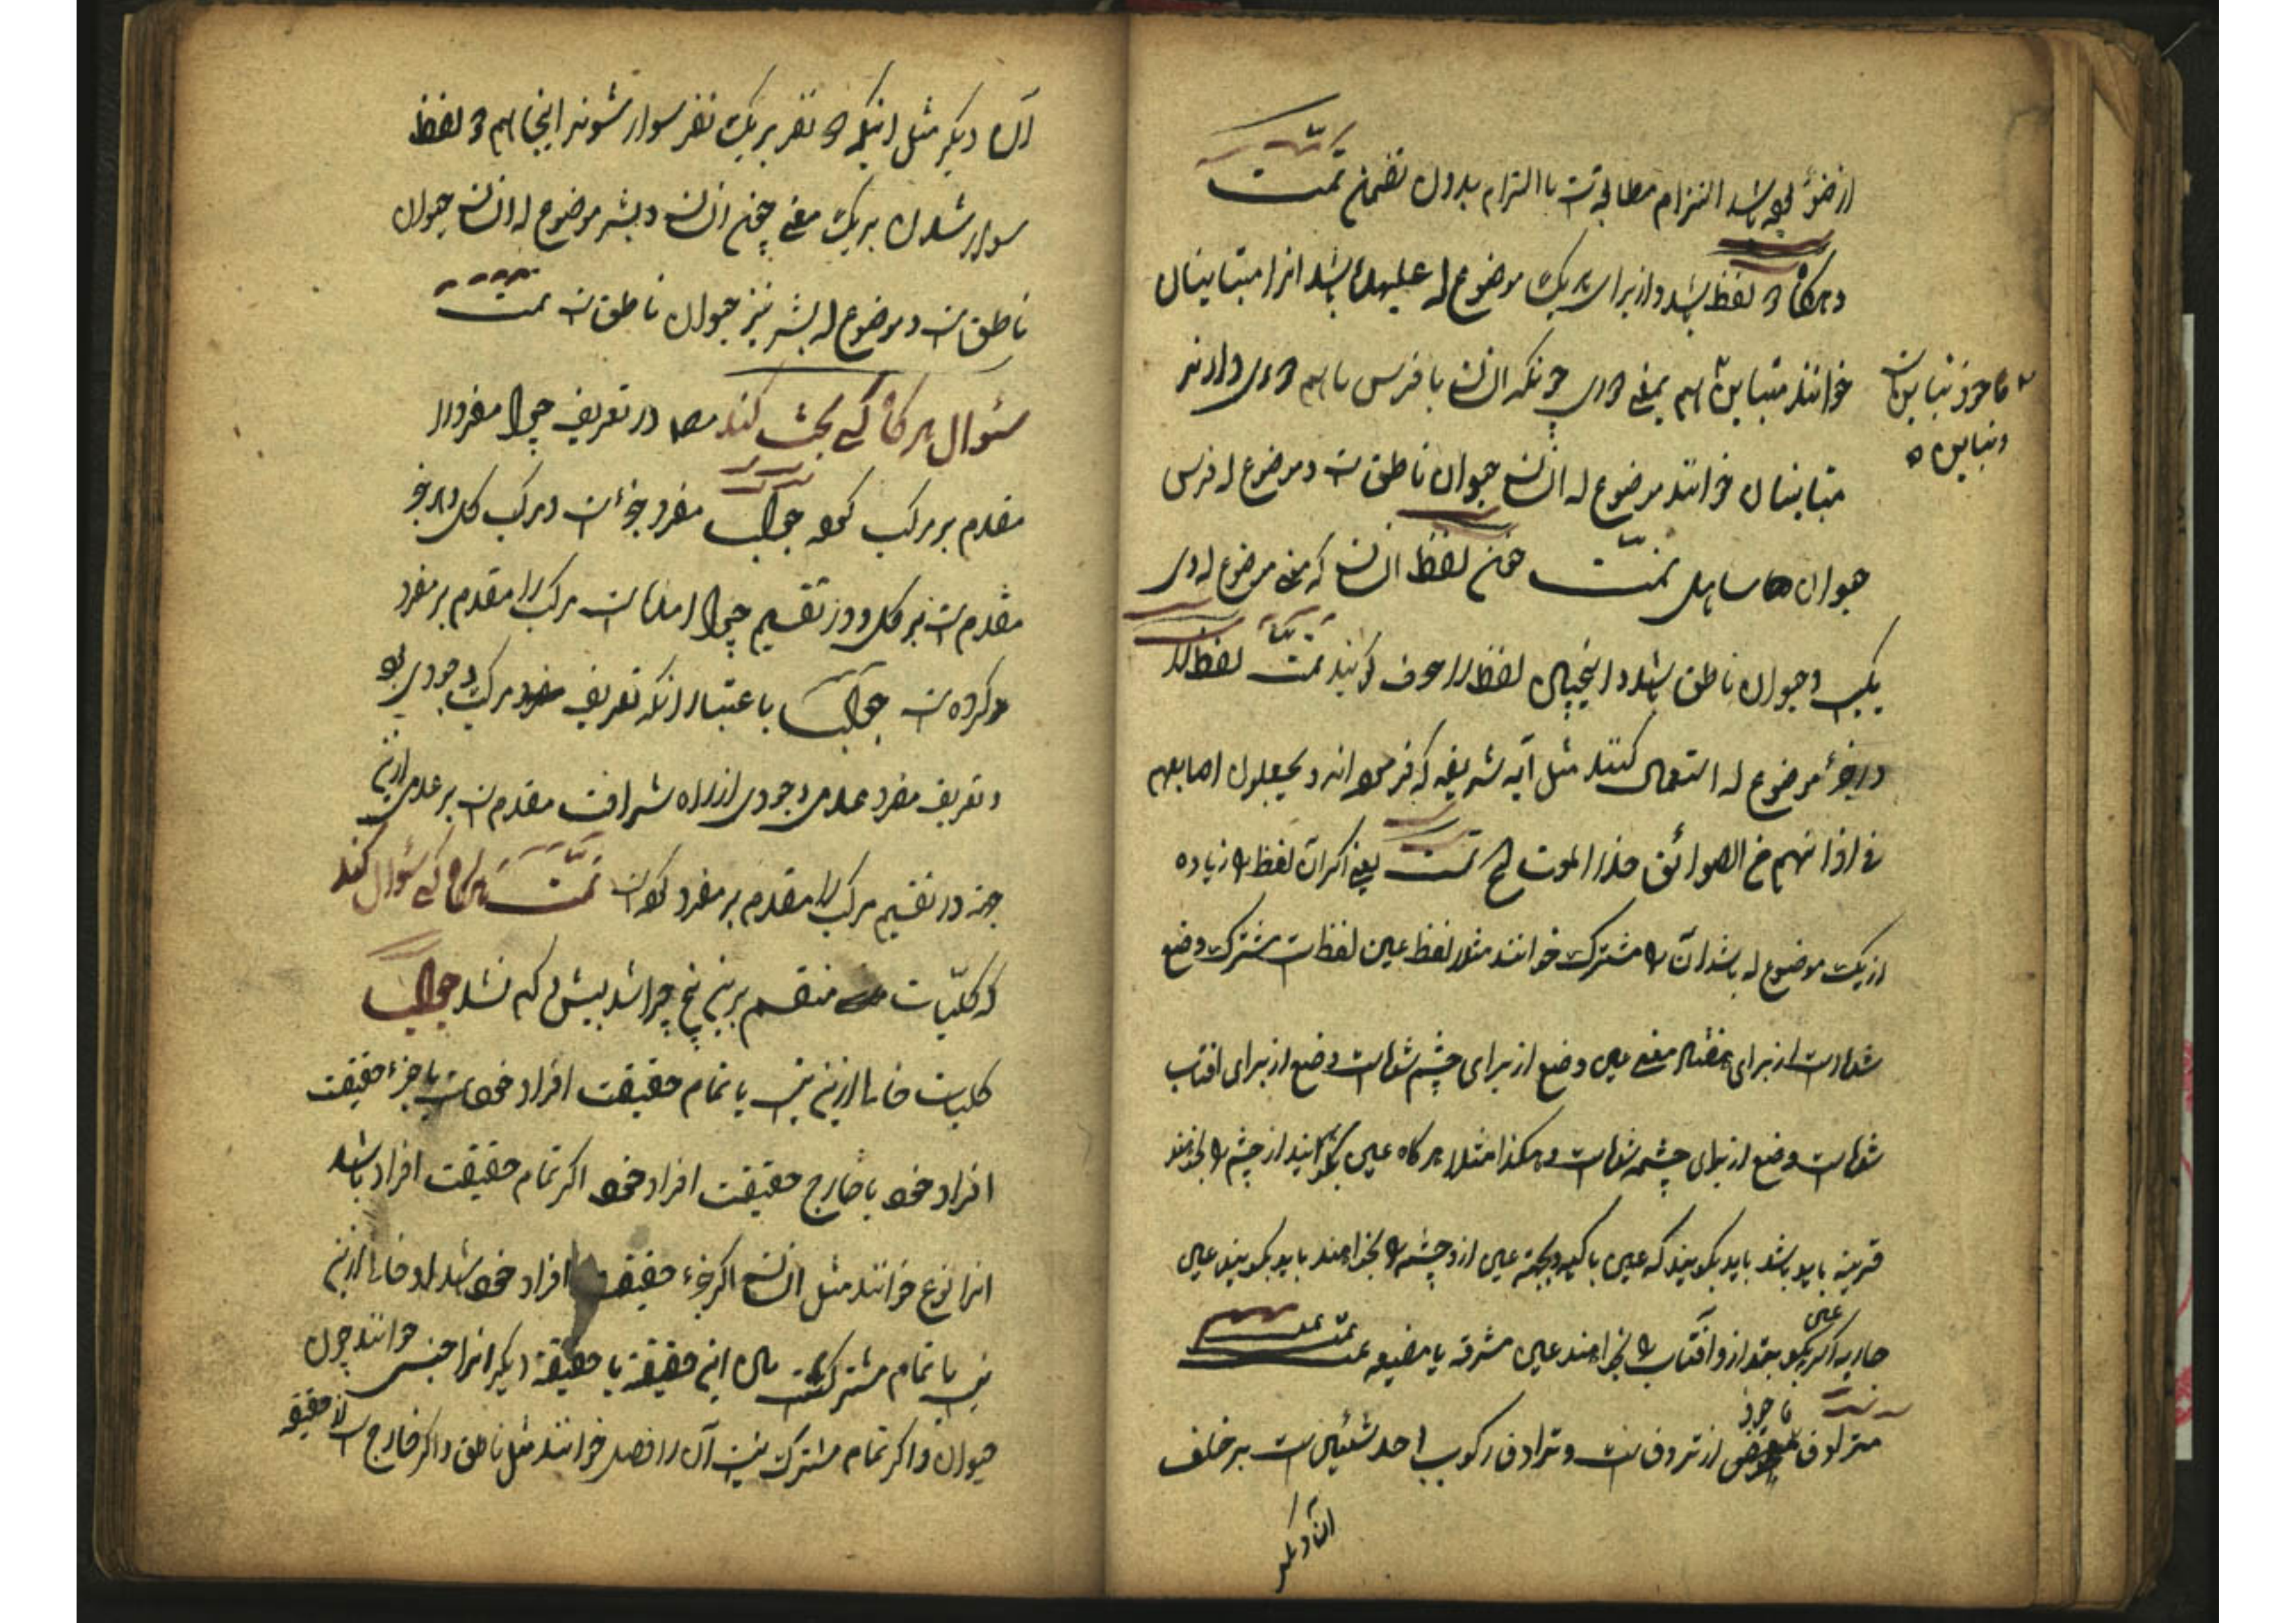 التزام مطابقتست با التزام بدون تضمن تمت
و هرگاه دو لفظ باشد و از برای هر یک موضوع له علیهده باشد انرا متباینان
خوانند متباین هم بمعنی دوری چونکه انسان با فرس با هم دوری دارند
ماخوذ تباین است
و تباین
متباینان خوانند موضوع له انسان حیوان ناطق است و موضوع له فرس
حیوان ساهل تمت چون لفظ انسان که معنی موضوع له وی
یکیست و حیوان ناطق باشد لفظ را گویند تمت لفظ را
در جزء موضوع له استعمال کنند مثل آیه شریفه که فرموده اند و یجعلون اصابعهم
فی اذانهم من الصوائق حذر الموت تمت یعنی اگر آن لفظ را زیاده
از یک موضوع له باشد آن را مشترک خوانند مثلا لفظ عین لفظ است مشترک وضع
شده است از برای معنی وضع از برای چشم شده است وضع از برای افتاب
شده است وضع از برای چشمه شده است و هکذا مثلا هرگاه عین بگویند از چشم را بخواهند
قرینه باید باشد باید بگویند که عین باکیه و هرگاه عین از و چشمه را بخواهند باید بگویند عین
جاریه اگر عین بگویند ازو آفتاب را بخواهند عین مشرقه یا مضیئه تمت
مترادف ماخوذ از ترادف است و ترادف رکوب احد شیئین است بر خلف
آن دیگر
آن دیگر مثل اینکه دو نفر بر یک نفر سوار شوند اینجا هم دو لفظ
سوار شدن بر یک معنی چون انسان و بشر موضوع له انسان حیوان
ناطق است و موضوع له بشر نیز حیوان ناطق است تمت
سئوال هرگاه کسی بحث کند در تعریف چرا مفرد را
مقدم بر مرکب کرده جواب مفرد جزء است و مرکب کل و هر جزء
مقدم است بر کل و در تقسیم چرا مرکب را مقدم بر مفرد
کرده است جواب باعتبار انکه تعریف مرکب وجودی بود
و تعریف مفرد عدمی وجودی از راه شرافت مقدم است بر عدمی ازین
جهة در تقسیم مرکب را مقدم بر مفرد کرده است تمت هرگاه کسی سئوال کند
که کلیات منقسم بر این پنج چرا شد بیش و کم نشد جواب
کلیات خالی ازین نیست یا تمام حقیقت افراد خود است یا جزء حقیقت
افراد خود یا خارج حقیقت افراد خود اگر تمام حقیقت افراد باشد
انرا نوع خوانند مثل انسان اگر جزء حقیقت افراد خود باشد او خالی ازین
نیست یا تمام مشترک است میان این حقیقة با حقیقة دیگر انرا جنس خوانند چون
حیوان و اگر تمام مشترک نیست آن را فصل خوانند مثل ناطق و اگر خارج است از حقیقة